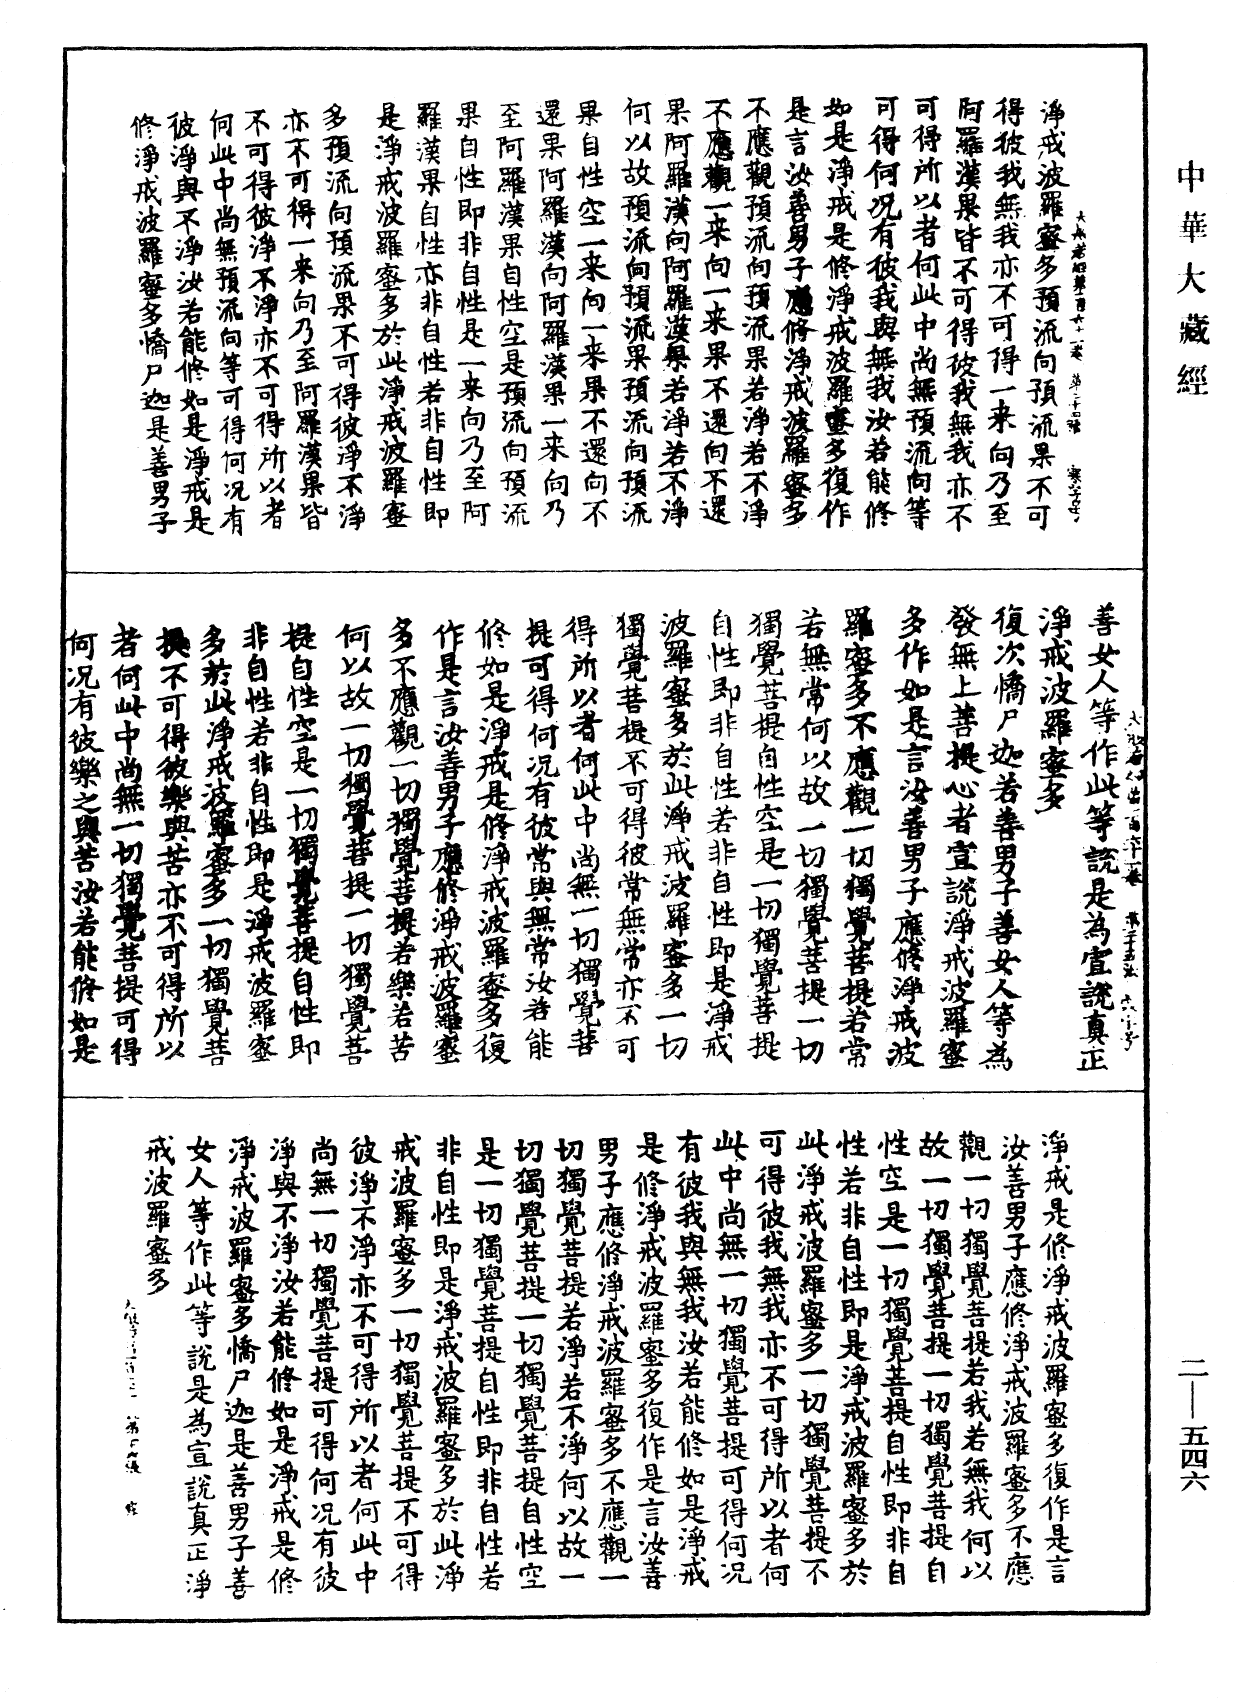 中華大藏經
淨戒波羅蜜多預流向預流果不可
得彼我無我亦不可得一来向乃至
阿羅漢果皆不可得彼我無我亦不
可得所以者何此中尚無預流向等
可得何况有彼我與無我汝若能修
如是淨戒是修淨戒波羅蜜多復作
是言汝善男子應修淨戒波羅蜜多
不應觀預流向預流果若淨若不淨
不應觀一来向一来果不還向不還
果阿羅漢向阿羅漢果若淨若不淨
何以故預流向預流果預流向預流
果自性空一来向一来果不還向不
還果阿羅漢向阿羅漢果一来向乃
至阿羅漢果自性空是預流向預流
果自性即非自性是一来向乃至阿
羅漢果自性亦非自性若非自性即
是淨戒波羅蜜多於此淨戒波羅蜜
多預流向預流果不可得彼淨不淨
亦不可得一来向乃至阿羅漢果皆
不可得彼淨不淨亦不可得所以者
何此中尚無預流向等可得何况有
彼淨與不淨汝若能修如是淨戒是
修淨戒波羅蜜多憍尸迦是善男子
善女人等作此等說是為宣說真正
淨戒波羅蜜多
復次憍尸迦若善男子善女人等為
發無上菩提心者宣說淨戒波羅蜜
多作如是言汝善男子應修淨戒波
羅蜜多不應觀一切獨覺菩提若常
若無常何以故一切獨覺菩提一切
獨覺菩提自性空是一切獨覺菩提
自性即非自性若非自性即是淨戒
波羅蜜多於此淨戒波羅蜜多一切
獨覺菩提不可得彼常無常亦不可
得所以者何此中尚無一切獨覺菩
提可得何况有彼常與無常汝若能
修如是淨戒是修淨戒波羅蜜多復
作是言汝善男子應修淨戒波羅蜜
多不應觀一切獨覺菩提若樂若苦
何以故一切獨覺菩提一切獨覺菩
提自性空是一切獨覺菩提自性即
非自性若非自性即是淨戒波羅蜜
多於此淨戒波羅蜜多一切獨覺菩
提不可得彼樂與苦亦不可得所以
者何此中尚無一切獨覺菩提可得
何况有彼樂之與苦汝若能修如是
淨戒是修淨戒波羅蜜多復作是言
汝善男子應修淨戒波羅蜜多不應
觀一切獨覺菩提若我若無我何以
故一切獨覺菩提一切獨覺菩提自
性空是一切獨覺菩提自性即非自
性若非自性即是淨戒波羅蜜多於
此淨戒波羅蜜多一切獨覺菩提不
可得彼我無我亦不可得所以者何
此中尚無一切獨覺菩提可得何况
有彼我與無我汝若能修如是淨戒
是修淨戒波羅蜜多復作是言汝善
男子應修淨戒波羅蜜多不應觀一
切獨覺菩提若淨若不淨何以故一
切獨覺菩提一切獨覺菩提自性空
是一切獨覺菩提自性即非自性若
非自性即是淨戒波羅蜜多於此淨
戒波羅蜜多一切獨覺菩提不可得
彼淨不淨亦不可得所以者何此中
尚無一切獨覺菩提可得何况有彼
淨與不淨汝若能修如是淨戒是修
淨戒波羅蜜多憍尸迦是善男子善
女人等作此等說是為宣說真正淨
戒波羅蜜多
二—五四六